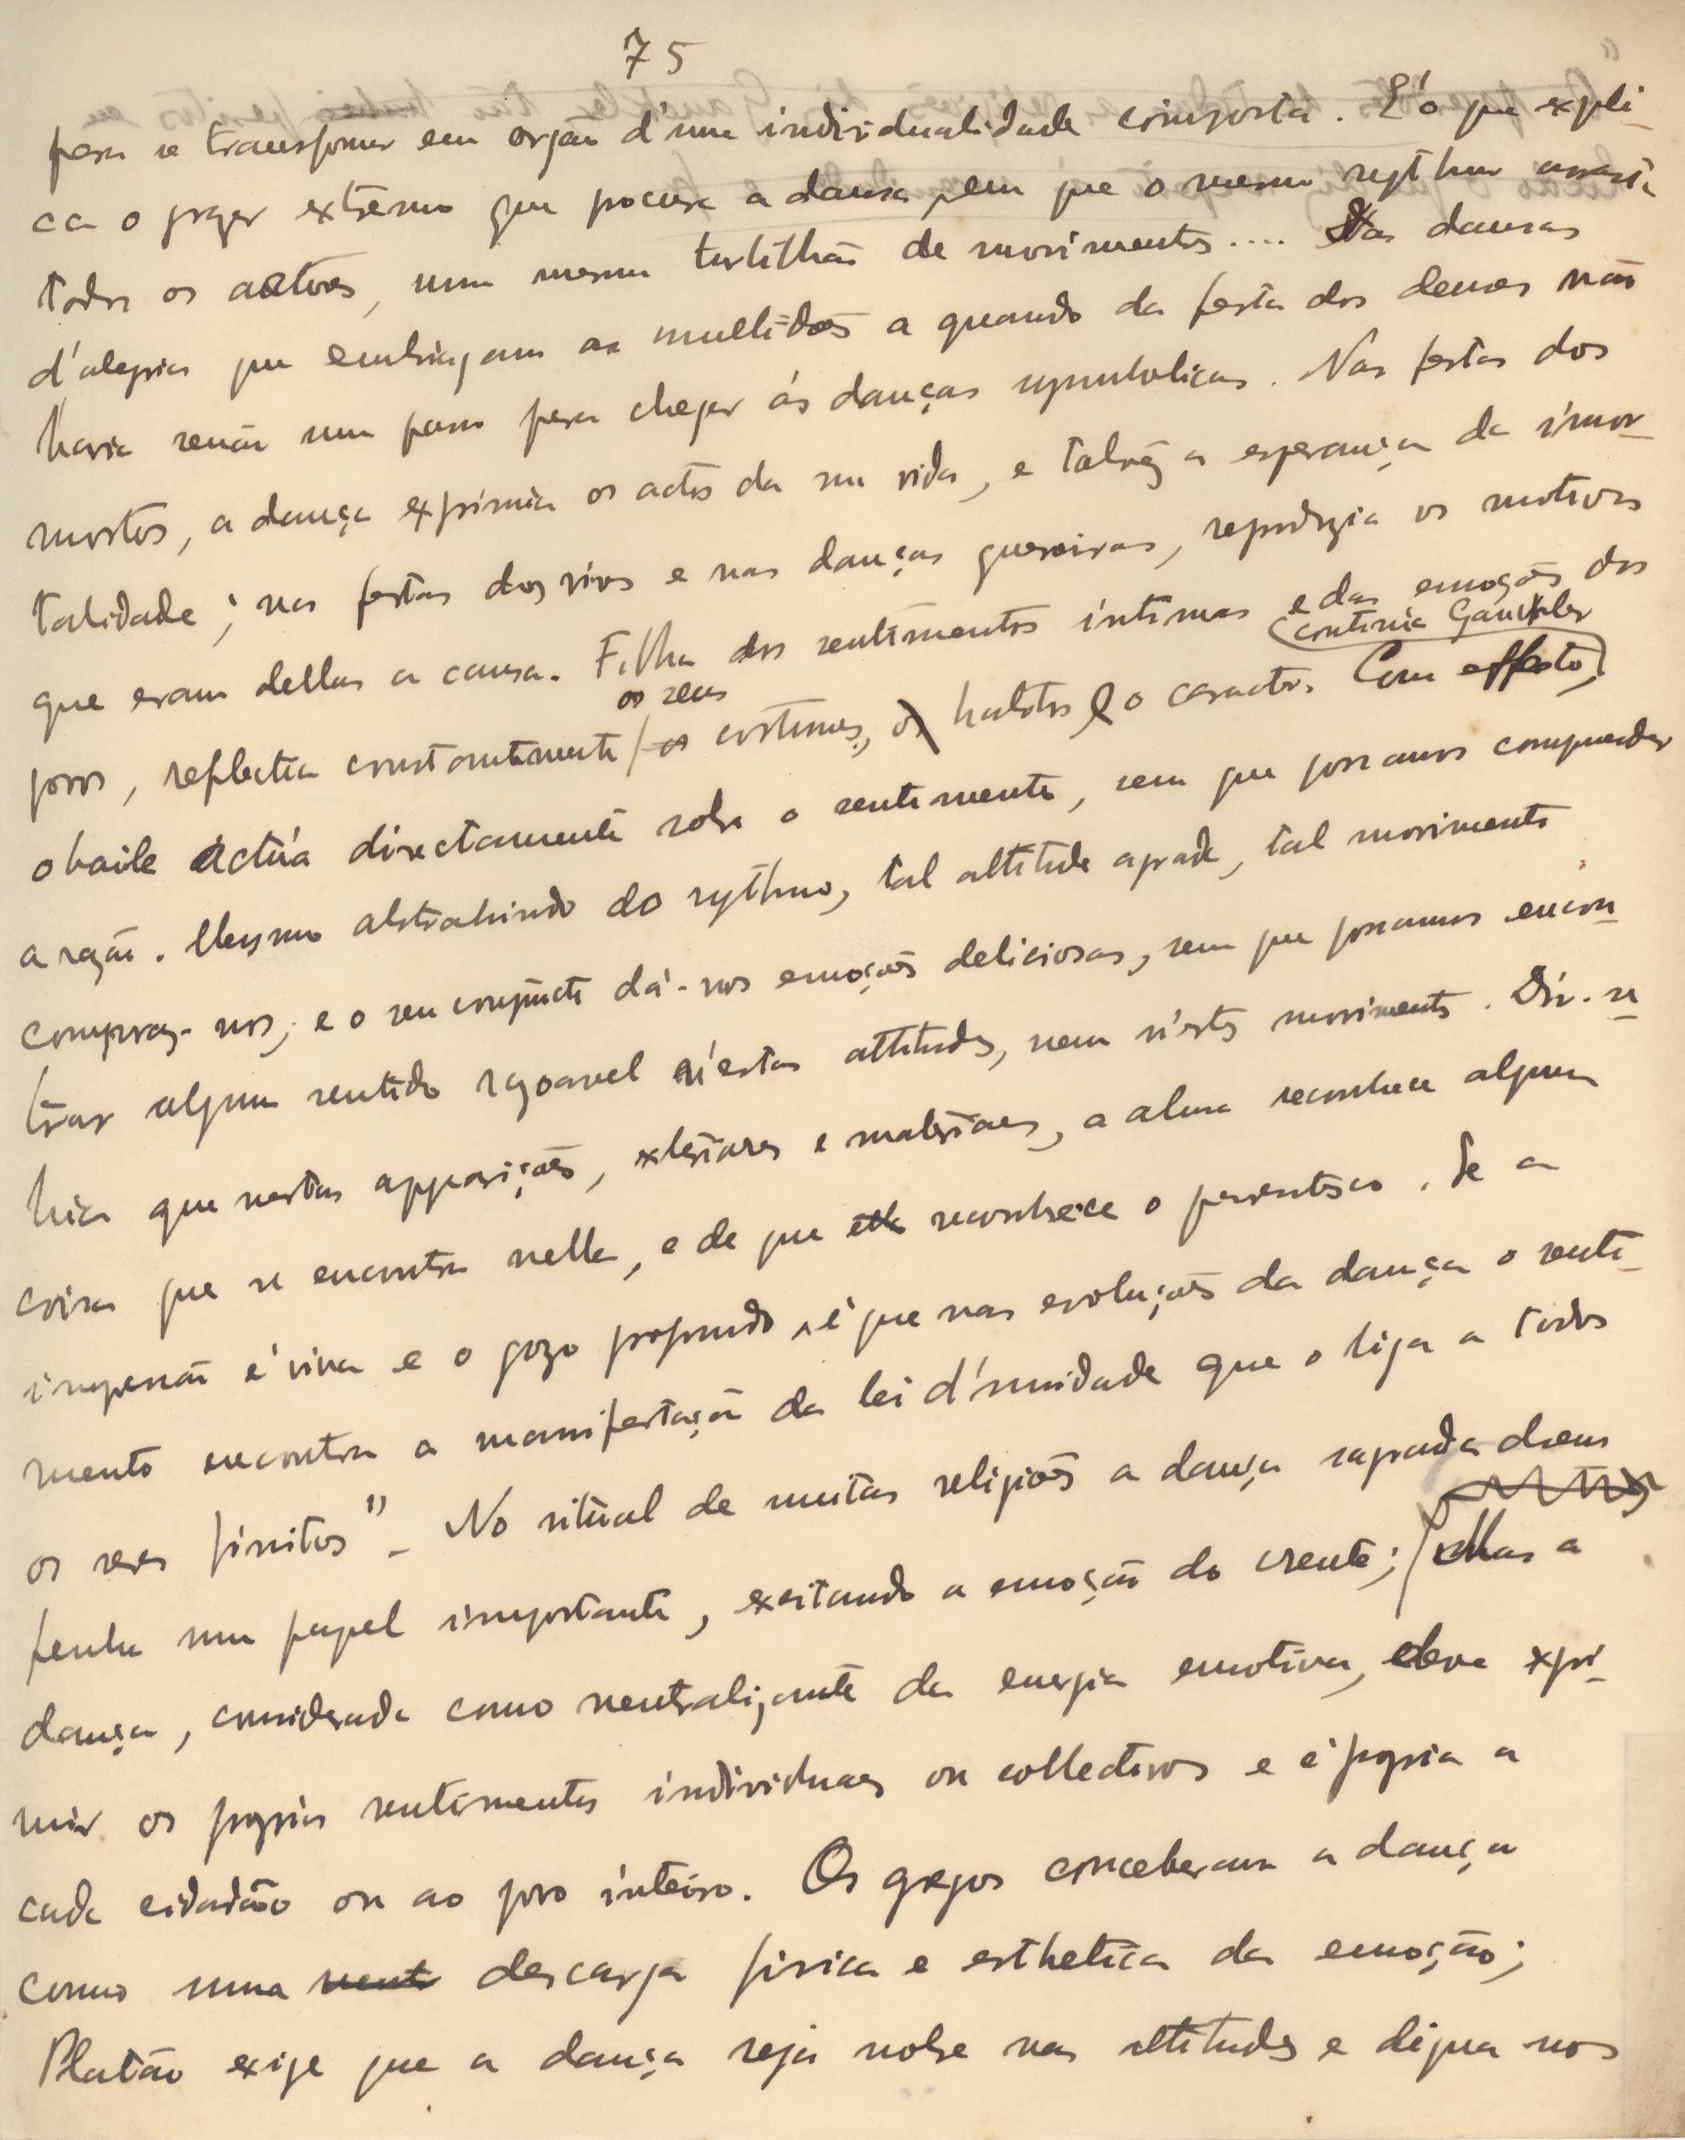 75
para se transformar em orgão d'uma individualidade composta. É o que expli-
ca o prazer extremo que procura a dansa, em que o mesmo rythmo arrasta
todos os actores, num mesmo turbilhão de movimentos.... Das dansas
d'alegria que embriagam as multidões a quando da festa dos deuses não
havia senão um passo para chegar ás danças symbolicas. Nas festas dos
mortos, a dança exprimia os actos da sua vida, e talvêz a esperança da imor-
talidade; nas festas dos vivos e nas danças guerreiras, reproduzia os motivos
que eram dellas a causa. Filha dos sentimentos intimos e das emoções dos
povos, reflectia constantemente os seus costumes, habitos e o caracter. (continúa Gauckler) Com effeito,
o baile actúa directamente sobre o sentimento, sem que possamos comprender
a razão. Mesmo abstrahindo do rythmo, tal attitude agrada, tal movimento
compraz-nos, e o seu conjuncto dá-nos emoções deliciosas, sem que possamos encon-
trar algum sentido razoavel n'estas attitudes, nem n'estes movimentos. Dir-se-
hia que nestas apparições, exteriores e materiaes, a alma reconhece alguma
coisa que se encontra nella, e de que ella reconhece o parentesco. Se a
impressão é viva e o gozo profundo, é que nas evoluções da dança o senti-
mento encontra a manifestação da lei d'unidade que o liga a todos
os seres finitos" – No ritual de muitas religiões a dança sagrada desem
penha um papel importante, exitando a emoção do crente; Mas a
dança, considerada como neutralizante da energia emotiva, deve expri-
mir os proprios sentimentos individuaes ou collectivos e é propria a
cada cidadão ou ao povo inteiro. Os gregos conceberam a dança
como uma descarga fisica e esthetica da emoção;
Platão exige que a dança seja nobre nas attitudes e digna nos